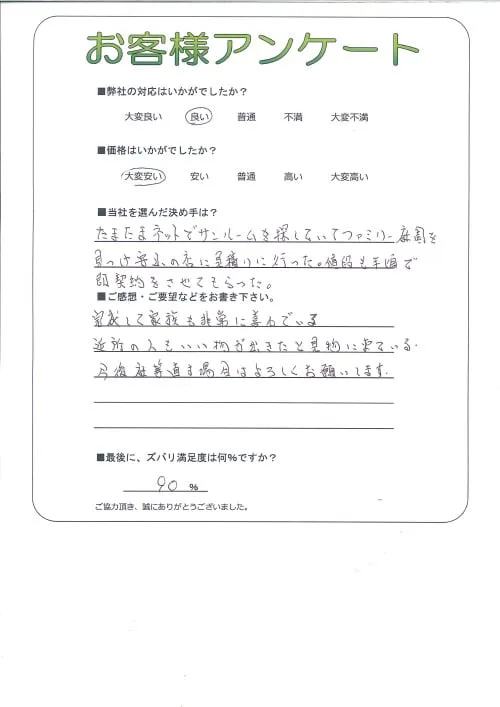 お客様アンケート
■弊社の対応はいかがでしたか？
大変良い 良い 普通 不満 大変不満
■価格はいかがでしたか？
大変安い 安い 普通 高い 大変高い
■当社を選んだ決め手は？
たまたまネットでサンルームを探していてファミリー庭園を
見つけ の店に見積りに行った。値段も手頃で
即契約をさせてもらった。
■ご感想・ご要望などをお書き下さい。
完成して家族も非常に喜んでいる
近所の人もいい物が出きたと見物に来ている.
今後 等直す場合はよろしくお願いします.
■最後に、ズバリ満足度は何％ですか？
90 ％
ご協力頂き、誠にありがとうございました。